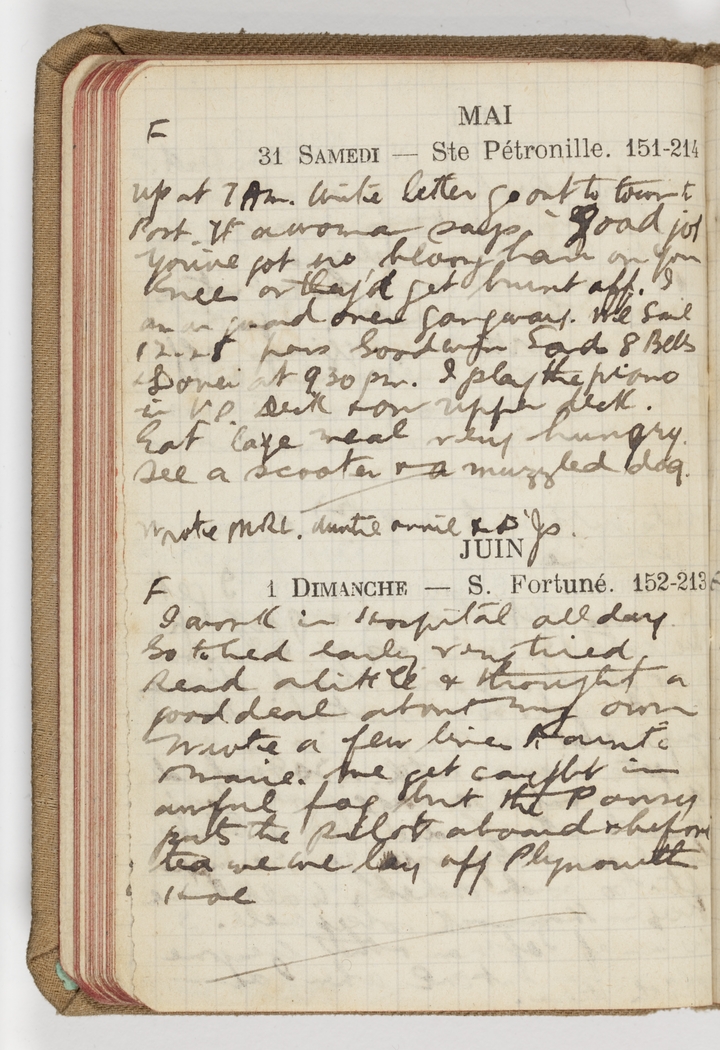 F
MAI
31 SAMEDI — Ste Pétronille. 151-214
Up at 7 Am. Write letter go out to town &
Post it a woman says "Good job
You've got no bloody hair on your
knee or they'd get burnt off. I
am on guard over gangway. We Sail
12.25 pass Goodwin Sands 8 Bells
& Dover at 930 pm. I play the piano
in deck & on upper deck.
Eat large meal very hungry.
See a scooter & a muzzled dog.
Wrote Auntie Annie &
JUIN
F
1 DIMANCHE — S. Fortuné. 152-213
I work in Hospital all day.
Go to bed early very tired.
Read a little & thought a
good deal about my own
Wrote a few lines to Aunt
Marie. We get caught in
awful fog but the Pansy
puts the pilot aboard & before
tea we lay off Plymouth
Hoe